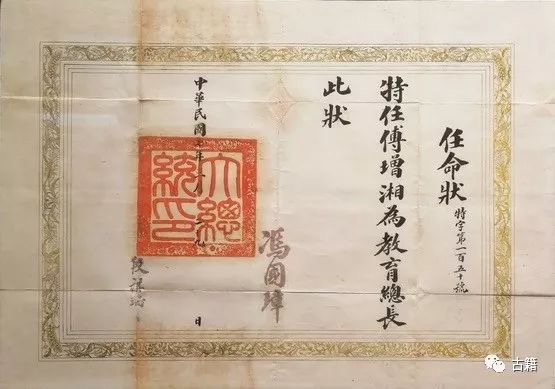 任命狀
特字第一百五十號
特任傅增湘為教育總長
此狀
馮國璋
大總統印
中華民國七年 月 日
段祺瑞
古籍